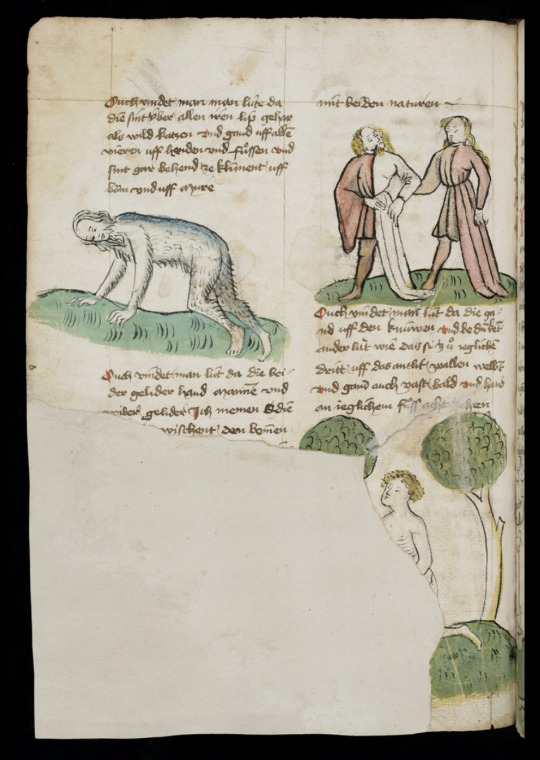 Ouch vindet man man lúte da
die sint úber allen iren lip gehar
als wild katzen vnd gand uff allē
vieren uff henden vnd fůssen vnd
sint gar behend ze klimēnt uff
bōm vnd uff mure
Ouch vindet man lút da die bei
der gelider hand mannē vnd
wiber gelider Ich meinen die
wischent den bomen
mit beiden naturen
Ouch vindet man lút da die ga
nd uff den knúwen vnd bedunkēt
ander lút wie das si zů ieglichē
dritt uff das antlit vallen wellēt
vnd gand auch vast bald vnd hand
an ieglichem fůß acht zehen